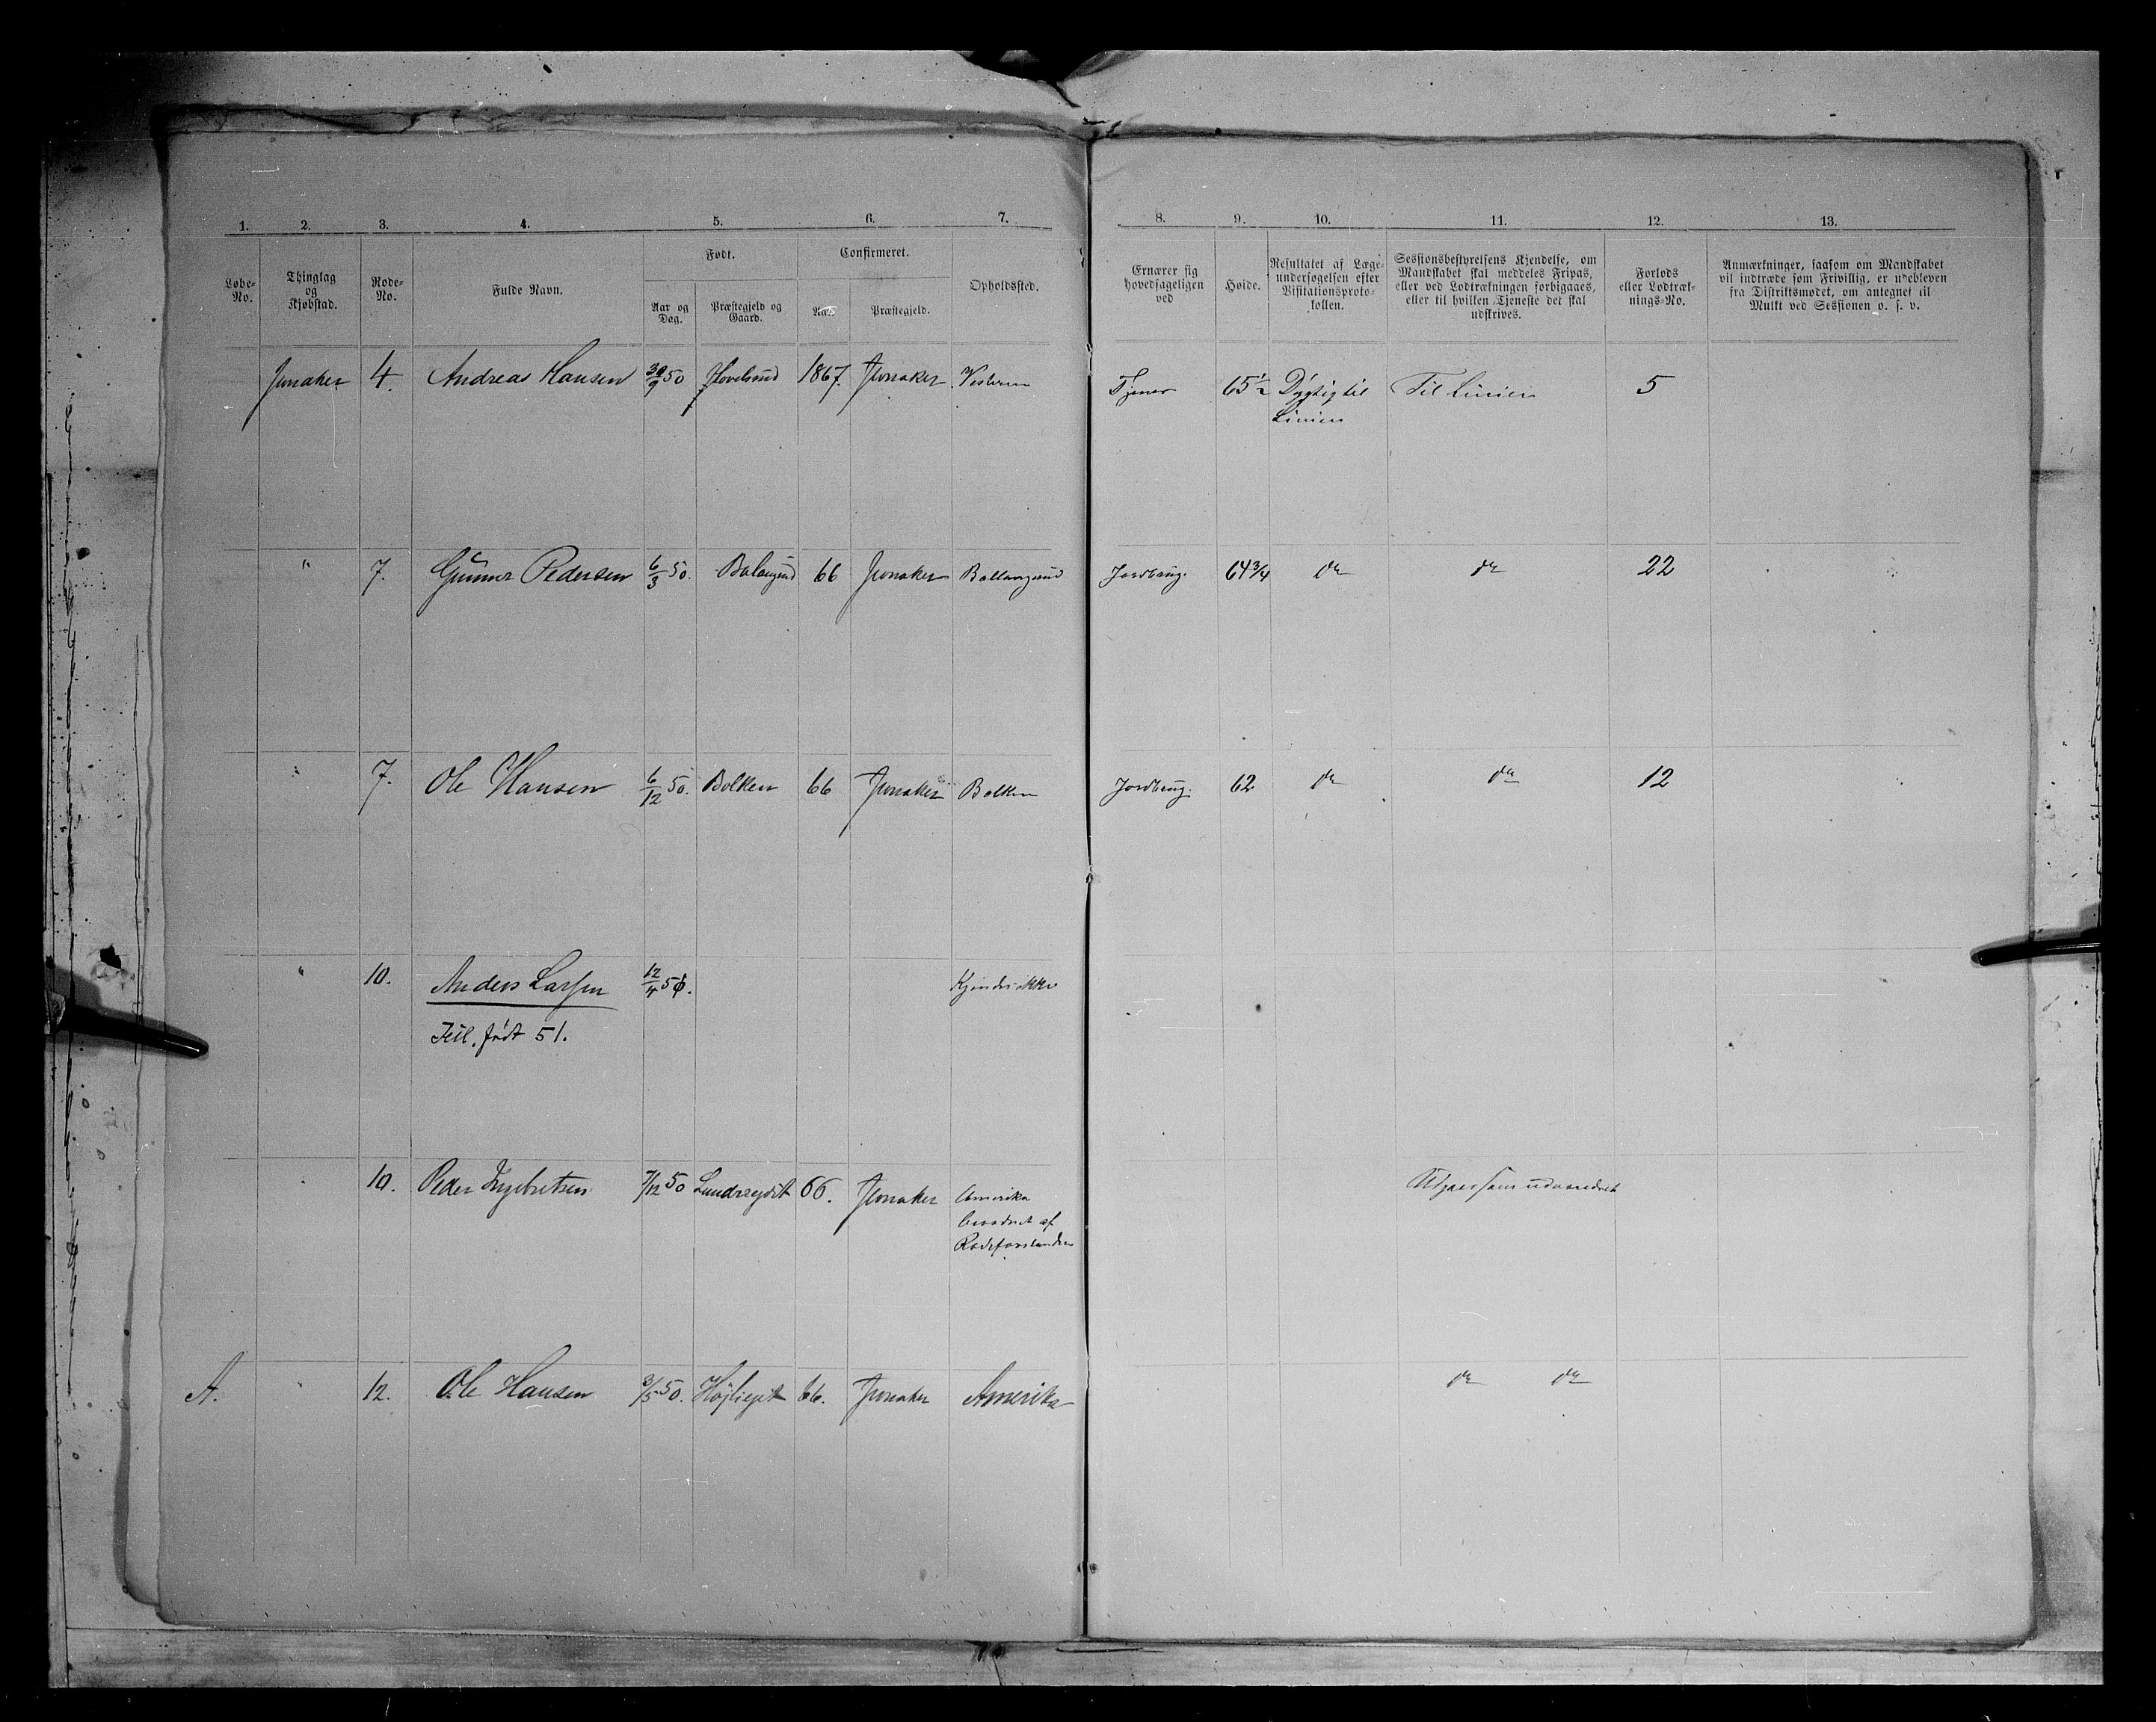 1. 2. 3. 4. 5. 6. 7. 8. 9. 10. 11. 12. 13.
Løbe-No.
Thinglag og Kjøbstad.
Rode-No.
Fulde Navn.
Født.
Aar og Dag.
Præstegjeld og Gaard.
Confirmeret.
Aar.
Præstegjeld.
Opholdssted.
Ernærer sig hovedsageligen ved
Høide.
Resultatet af Læge-undersøgelsen efter Visitationsproto-kollen.
Sessionsbestyrelsens Kjendelse, om Mandskabet skal meddeles Fripas, eller ved Lodtrækningen forbigaaes, eller til hvilken Tjeneste det skal udskrives.
Forlods eller Lodtræk-nings-No.
Anmærkninger, saasom om Mandskabet vil indtræde som Frivillig, er udebleven fra Distriktsmødet, om antegnet til Mulkt ved Sessionen o. s. v.
Jevnaker 4. Andreas Hansen 30/9 50 Hovelsrud 1867. Jevnaker Vestern Tjener 65 1/2 Dygtig til Til Linien 5
Linien
" 7. Gunner Pedersen 6/3 50. Balangrud 66 Jevnaker Ballangrud Jordbrug. 64 3/4 do do 22
" 7. Ole Hansen 6/12 50. Bolken 66 Jevnaker Bolken Jordbrug. 62 do do 12
" 10. Anders Larsen 12/4 50. Kjendes ikke
Feil. født 51.
" 10. Peder Ingebretsen 7/12 50 66. Jevnaker Amerika Udgaaer som udvandret
af
Rodeforstanderen
A. " 12. Ole Hansen 3/5 50. 66. Jevnaker Amerika do do